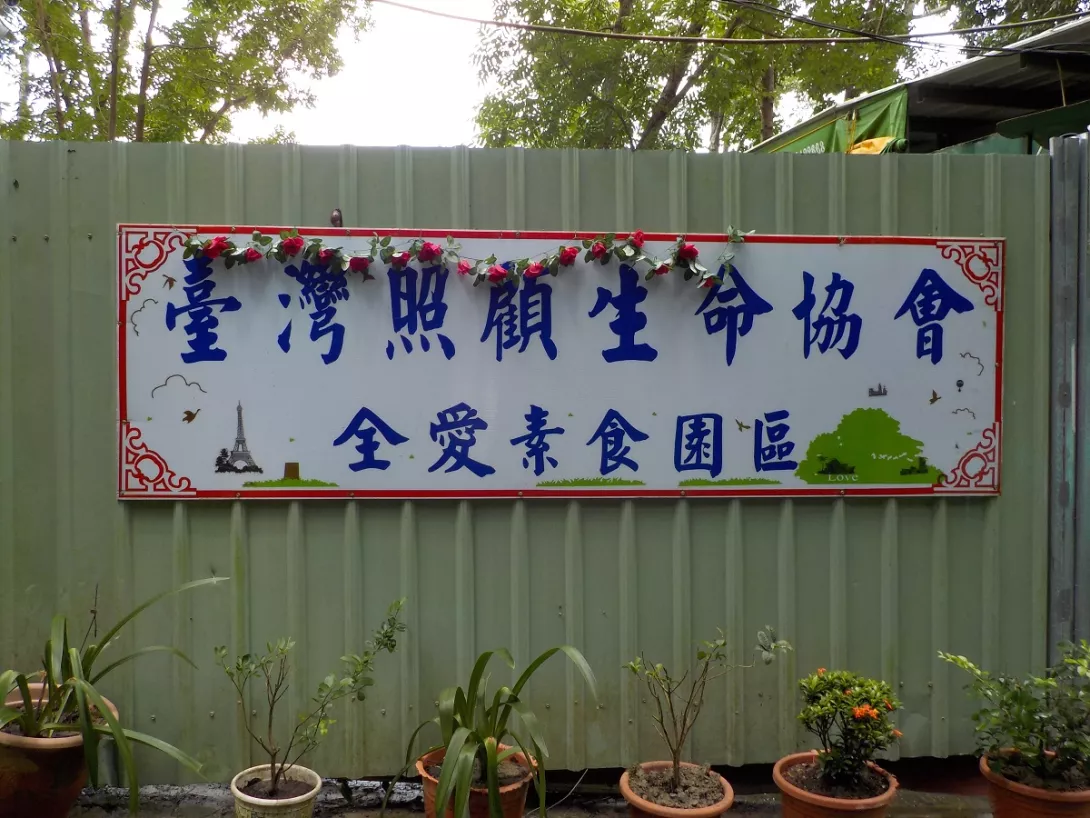 臺灣照顧生命協會
全愛素食園區
Love